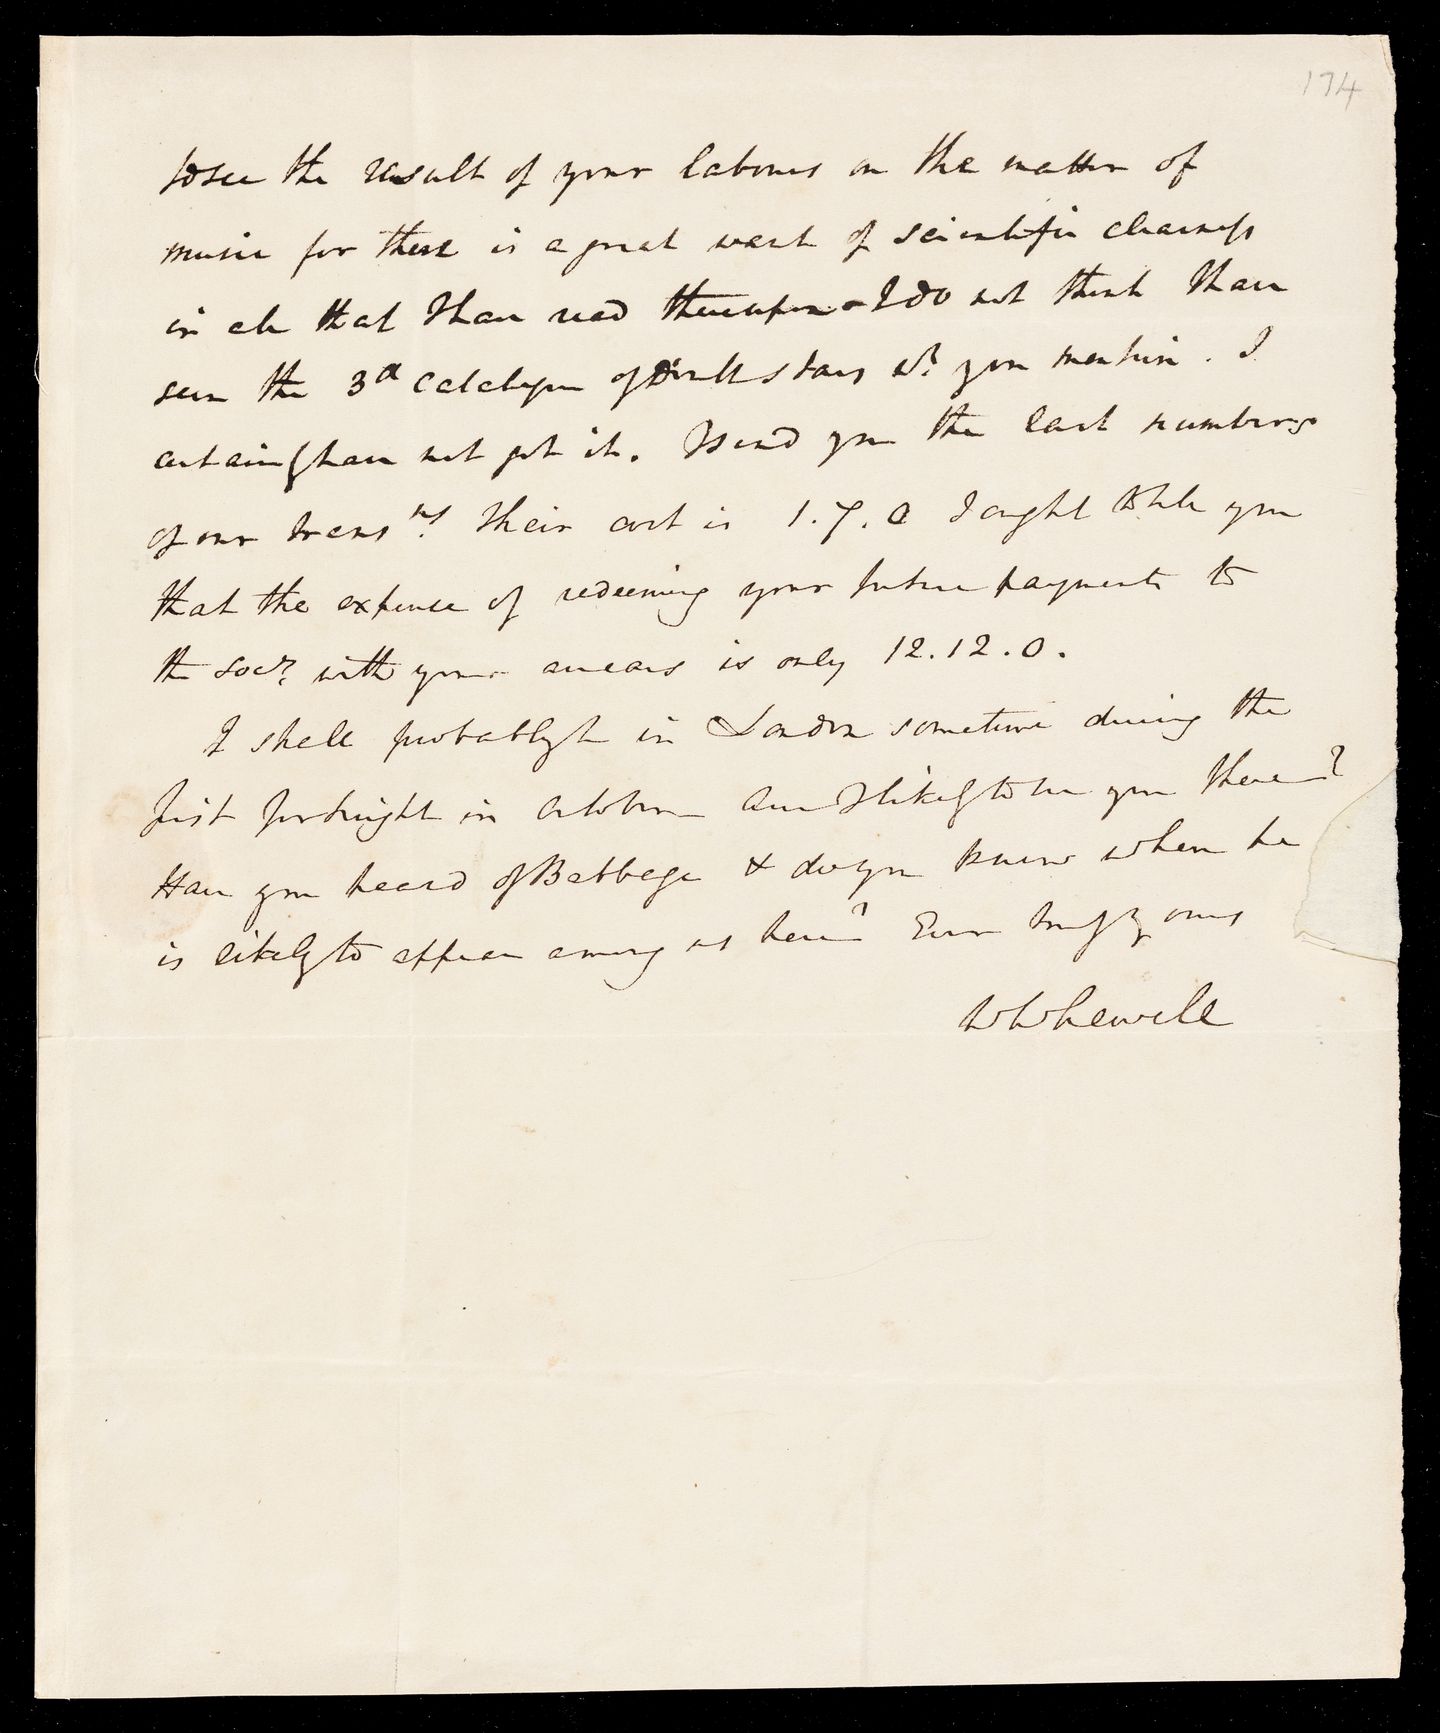 174
to see the result of your labours on the matter of
music for there is a great want of scientific clearness
in all that I have read thereupon - I do not think I have
seen the 3d catalogue of Double stars wh. you mention. I
certainly have not got it. I send you the last numbers
of our transns. Their cost is 1.7.0 I ought to tell you
that the expense of redeeming your future payments to
the Socy. with your arrears is only 12.12.0.
I shall probably be in London sometime during the
first fortnight in October Am I likely to see you there?
Have you heard of Babbage & do you know when he
is likely to appear among us here? Ever truly yours
W Whewell